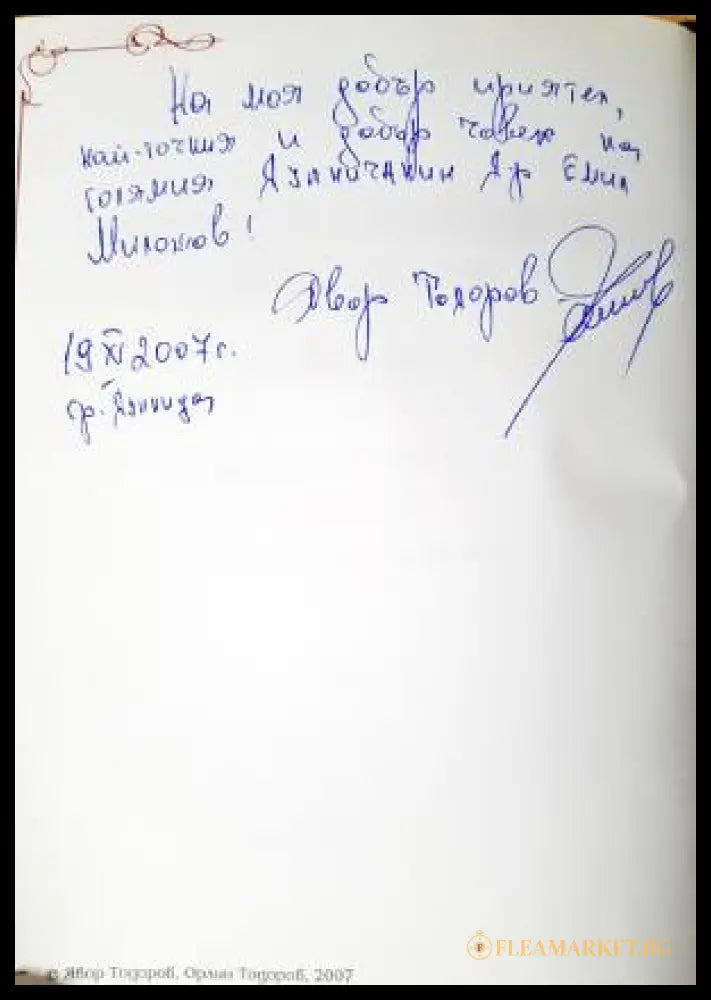 На моя добър приятел,
най-точния и добър човек на
големия Д-р Емил
19 XI 2007 г.
Явор Тодоров
гр.
© Явор Тодоров, Орлин Тодоров, 2007
FLEAMARKET.BG